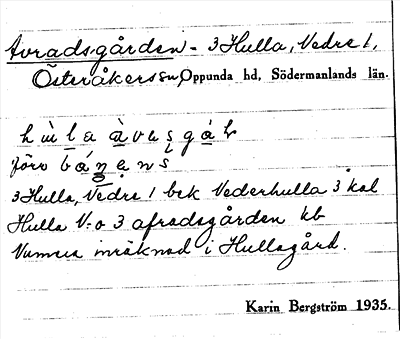 Avradsgården - 3 Hulla, Vedre 1,
Österåkers sn, Oppunda hd, Södermanlands län.
hùla àvusgáɖ
förv
3 Hulla, Vedre 1 bek Vederhulla 3 kal
Hulla V:o 3 afradsgården kb
Numera inräknad i Hullagård.
Karin Bergström 1935.